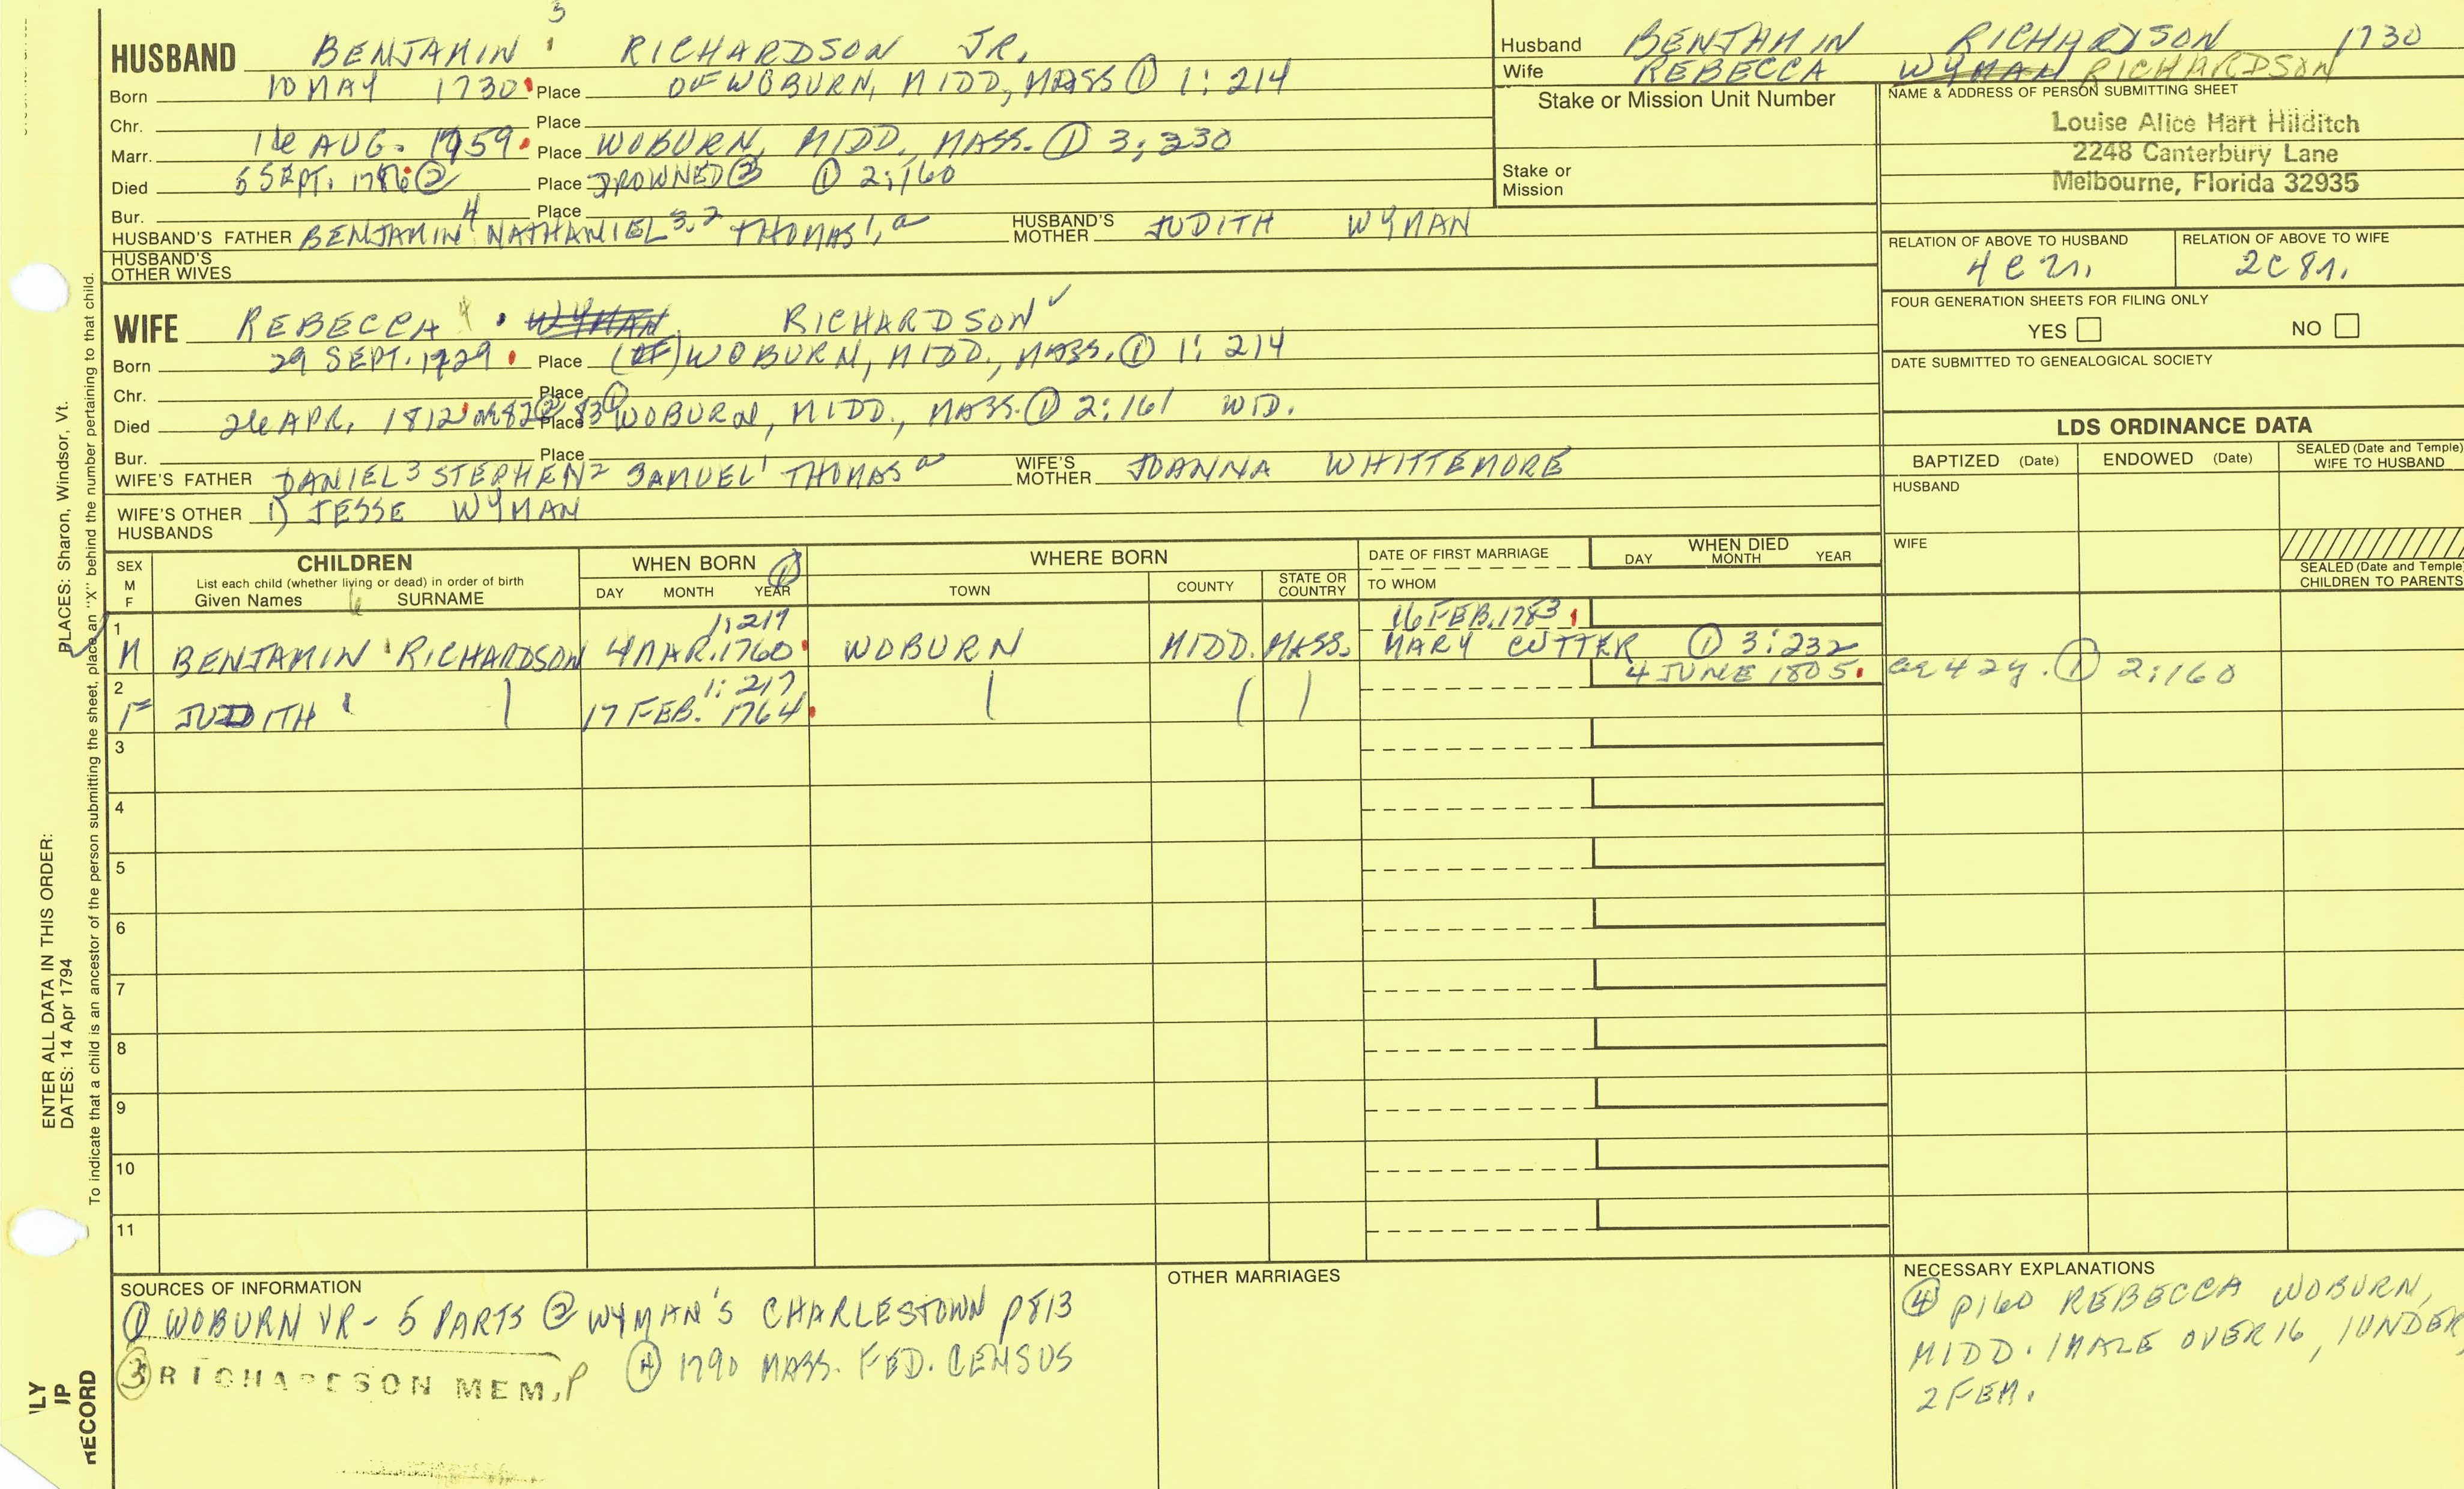 5
HUSBAND BENJAMIN RICHARDSON JR.
Born 10 MAY 1730 Place OF WOBURN, MIDD, MASS ① 1:214
Chr. Place
Marr. 16 AUG. 1759 Place WOBURN, MIDD., MASS. ① 3:230
Died 5 SEPT. 1786 ② Place DROWNED ③ ① 2:160
Bur. Place
HUSBAND'S FATHER BENJAMIN 4 NATHANIEL 3,2 THOMAS 1,a HUSBAND'S MOTHER JUDITH WYMAN
HUSBAND'S
OTHER WIVES
WIFE REBECCA 4 WYMAN RICHARDSON ✓
Born 29 SEPT. 1729 Place (OF) WOBURN, MIDD., MASS. ① 1:214
Chr. Place
Died 26 APR. 1812 82 ② 83 ① Place WOBURN, MIDD., MASS. ① 2:161 WID.
Bur. Place
WIFE'S FATHER DANIEL 3 STEPHEN 2 SAMUEL 1 THOMAS a WIFE'S MOTHER JOANNA WHITTEMORE
WIFE'S OTHER HUSBANDS 1) JESSE WYMAN
Husband BENJAMIN RICHARDSON 1730
Wife REBECCA WYMAN RICHARDSON
Stake or Mission Unit Number
Stake or
Mission
NAME & ADDRESS OF PERSON SUBMITTING SHEET
Louise Alice Hart Hilditch
2248 Canterbury Lane
Melbourne, Florida 32935
RELATION OF ABOVE TO HUSBAND RELATION OF ABOVE TO WIFE
4C7r. 2C8r.
FOUR GENERATION SHEETS FOR FILING ONLY
YES NO
DATE SUBMITTED TO GENEALOGICAL SOCIETY
LDS ORDINANCE DATA
BAPTIZED (Date) ENDOWED (Date) SEALED (Date and Temple) WIFE TO HUSBAND
HUSBAND
WIFE
SEALED (Date and Temple)
CHILDREN TO PARENTS
SEX
M
F
CHILDREN
List each child (whether living or dead) in order of birth
Given Names 6 SURNAME
WHEN BORN ①
DAY MONTH YEAR
WHERE BORN
TOWN COUNTY STATE OR COUNTRY
DATE OF FIRST MARRIAGE
TO WHOM
WHEN DIED
DAY MONTH YEAR
1 1:217 16 FEB. 1783
M BENJAMIN RICHARDSON 4 MAR. 1760 WOBURN MIDD. MASS. MARY CUTTER ① 3:232
2 1:217 4 JUNE 1805. ae 42y. ① 2:160
F JUDITH 17 FEB. 1764
3
4
5
6
7
8
9
10
11
SOURCES OF INFORMATION
① WOBURN VR - 5 PARTS ② WYMAN'S CHARLESTOWN p813
③ RICHARDSON MEM, P ④ 1790 MASS. FED. CENSUS
OTHER MARRIAGES
NECESSARY EXPLANATIONS
④ p160 REBECCA WOBURN,
MIDD. 1 MALE OVER 16, 1 UNDER,
2 FEM.
PLACES: Sharon, Windsor, Vt.
ENTER ALL DATA IN THIS ORDER:
DATES: 14 Apr 1794
To indicate that a child is an ancestor of the person submitting the sheet, place an "X" behind the number pertaining to that child.
ILY
IP
RECORD